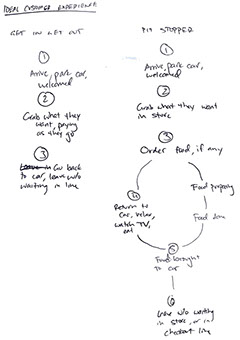 IDEAL CUSTOMER EXPERIENCE
GET IN GET OUT
1
Arrive, park car,
welcomed
2
Grab what they
want, paying
as they go
3
Go back
to car, leave w/o
waiting in line
PIT STOPPER
1
Arrive, park car,
welcomed
2
Grab what they want
in store
3
Order food, if any
4
Return to
car, relax,
watch TV,
eat
Food preparing
Food done
5
Food brought
to car
6
Leave w/o waiting
in store, or in
checkout line